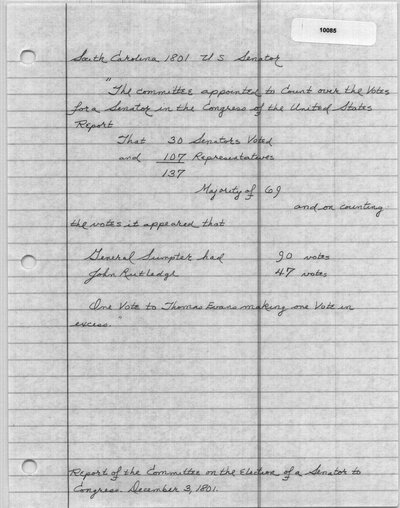 10085
South Carolina 1801 U S Senator
"The committee appointed to Count over the Votes
for a Senator in the Congress of the United States
Report
That 30 Senators Voted
and 107 Representatives
137
Majority of 69
and on counting
the votes it appeared that
General Sumpter had 90 votes
John Rutledge 47 votes
One Vote to Thomas Evans making one Vote in
excess."
Report of the Committee on the Election of a Senator to
Congress. December 3, 1801.